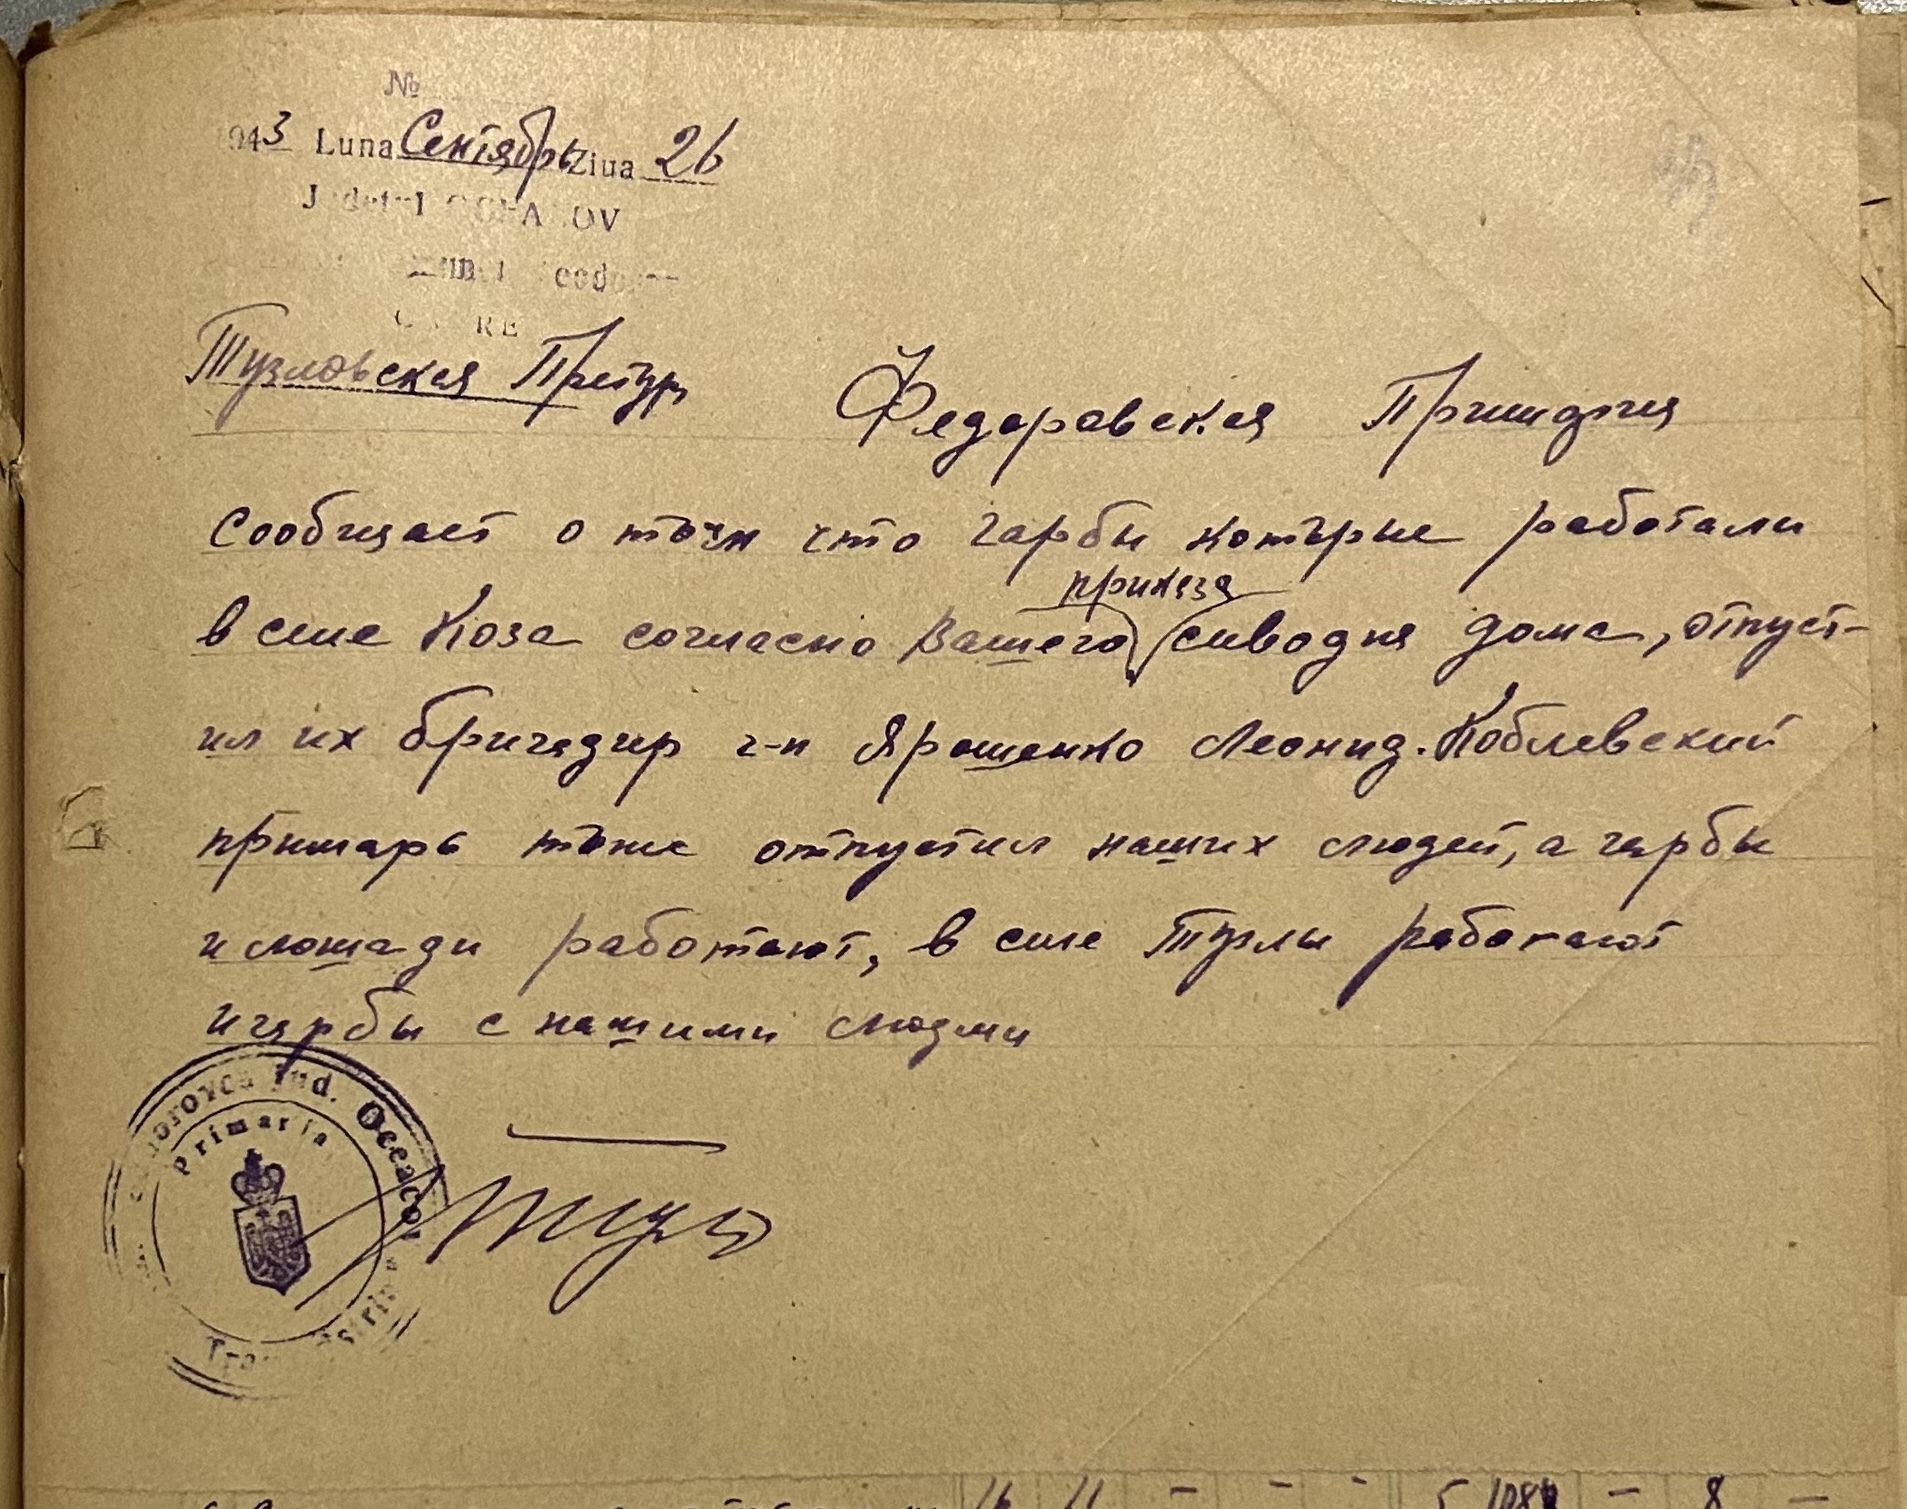 №
1943 Luna Сентябрь Ziua 26
Тузловская Претур
Федоравская Примария
сообщает о том что гарбы которые работали
в селе Коза согласно Вашего приказа сиводня дома, отпуст-
ил их бригадир г-н Ярошенко Леонид. Коблевский
примарь тоже отпустил наших людей, а гарбы
и лошади работают, в селе Тузлы работают
и гарбы с нашими людми
Jud. Oceacov
Primaria
16 11 - - - 5 - 8 -